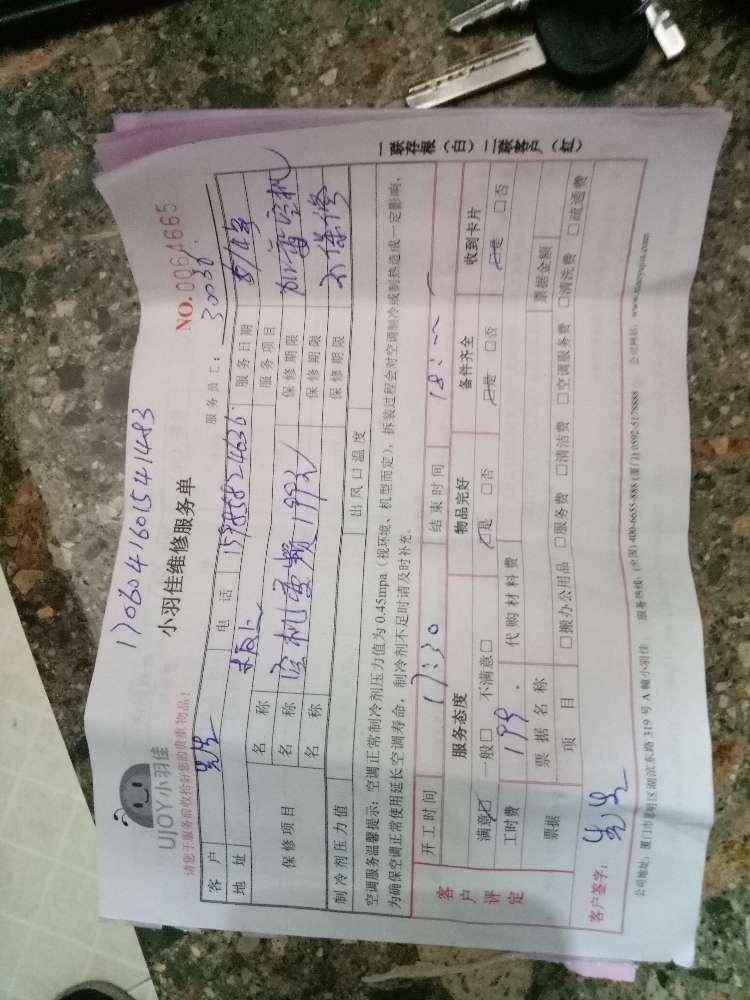 17060416015414483
UJOY小羽佳
小羽佳维修服务单
NO.0064665
请您于服务前收拾好您的贵重物品!
服务员工: 30030
客户 先生 电话 15985824636 服务日期
地址 服务项目
保修项目 名称 保修期限
名称 199元 保修期限 不保修
名称 保修期限
制冷剂压力值 出风口温度
空调服务温馨提示: 空调正常制冷剂压力值为 0.45mpa (视环境、机型而定), 拆装过程会对空调制冷或制热造成一定影响,
为确保空调正常使用延长空调寿命, 制冷剂不足时请及时补充。
客户评定
开工时间 17:30 结束时间 18:
服务态度 物品完好 备件齐全 收到卡片
满意☑ 一般□ 不满意□ ☑是 □否 ☑是 □否 ☑是 □否
工时费 199. 代购材料费
票据 票据名称 票据金额
项目 □搬办公用品 □服务费 □清洁费 □空调服务费 □清洗费 □疏通费
客户签字: 先生
公司地址: 厦门市思明区湖滨东路 319 号 A 幢小羽佳 服务热线: (全国) 400-6655-888 (厦门) 0592-5178888 公司网站: www.xiaoyujia.com
一联存根 (白) 二联客户 (红)